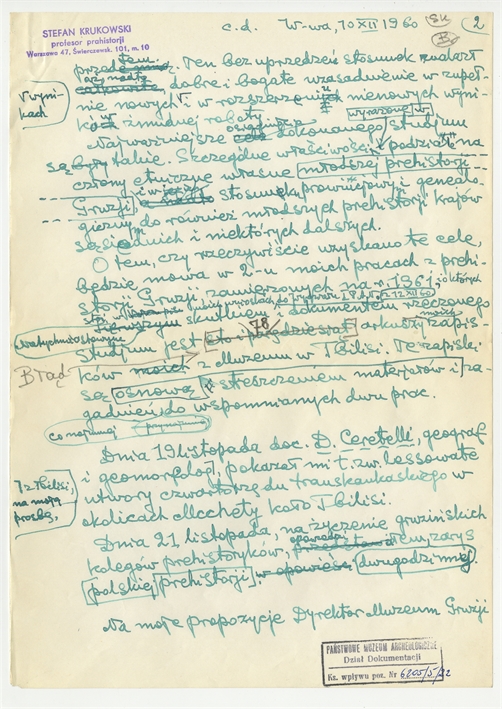 STEFAN KRUKOWSKI
profesor prehistorji
Warszawa 47, Świerczewsk. 101, m. 10
c.d. W-wa, 10 XII 1960
SK
2
przed tem. Ten bez uprzedzeń stosunek znalazł
dobre i bogate uzasadnienie w zupeł-
nie nowych i w rozszerzeniu nienowych wyni-
V wyni-
kach
żmudnej roboty
Najważniejsze osiągnięcia dokonanego studjum
wyrażone w
są takie. Szczególne właściwości, podział na
człony etniczne własne młodszej prehistorji
Gruzji, stosunek prowincjowy i genealo-
giczny do również młodszych prehistorji krajów
sąsiednich i niektórych dalszych.
O tem, czy rzeczywiście uzyskano te cele,
będzie mowa w 2-u moich pracach z prehi-
storji Gruzji, zamierzonych na r. 1961, o których
skutkiem i dokumentem rzeczowego
natychmiastowym
studjum jest 78 arkuszy zapis-
Błąd
ków moich z Muzeum w Tbilisi. Te zapiski
są osnową, streszczeniem materjałów i za-
gadnień do wspomnianych dwu prac.
co najmniej
przynajmniej
Dnia 19 listopada doc. D. Ceretelli, geograf
i geomorfolog, pokazał mi t.zw. lessowate
utwory czwartorzędu transkaukaskiego w
okolicach Mcchety koło Tbilisi.
z Tbilisi,
na moją
prośbę,
Dnia 21 listopada, na życzenie gruzińskich
kolegów prehistoryków, opowiedziałem zarys
polskiej prehistorji w opowieści dwugodzinnej.
Na moje propozycje Dyrektor Muzeum Gruzji
PAŃSTWOWE MUZEUM ARCHEOLOGICZNE
Dział Dokumentacji
Ks. wpływu poz. Nr 6205/5/22